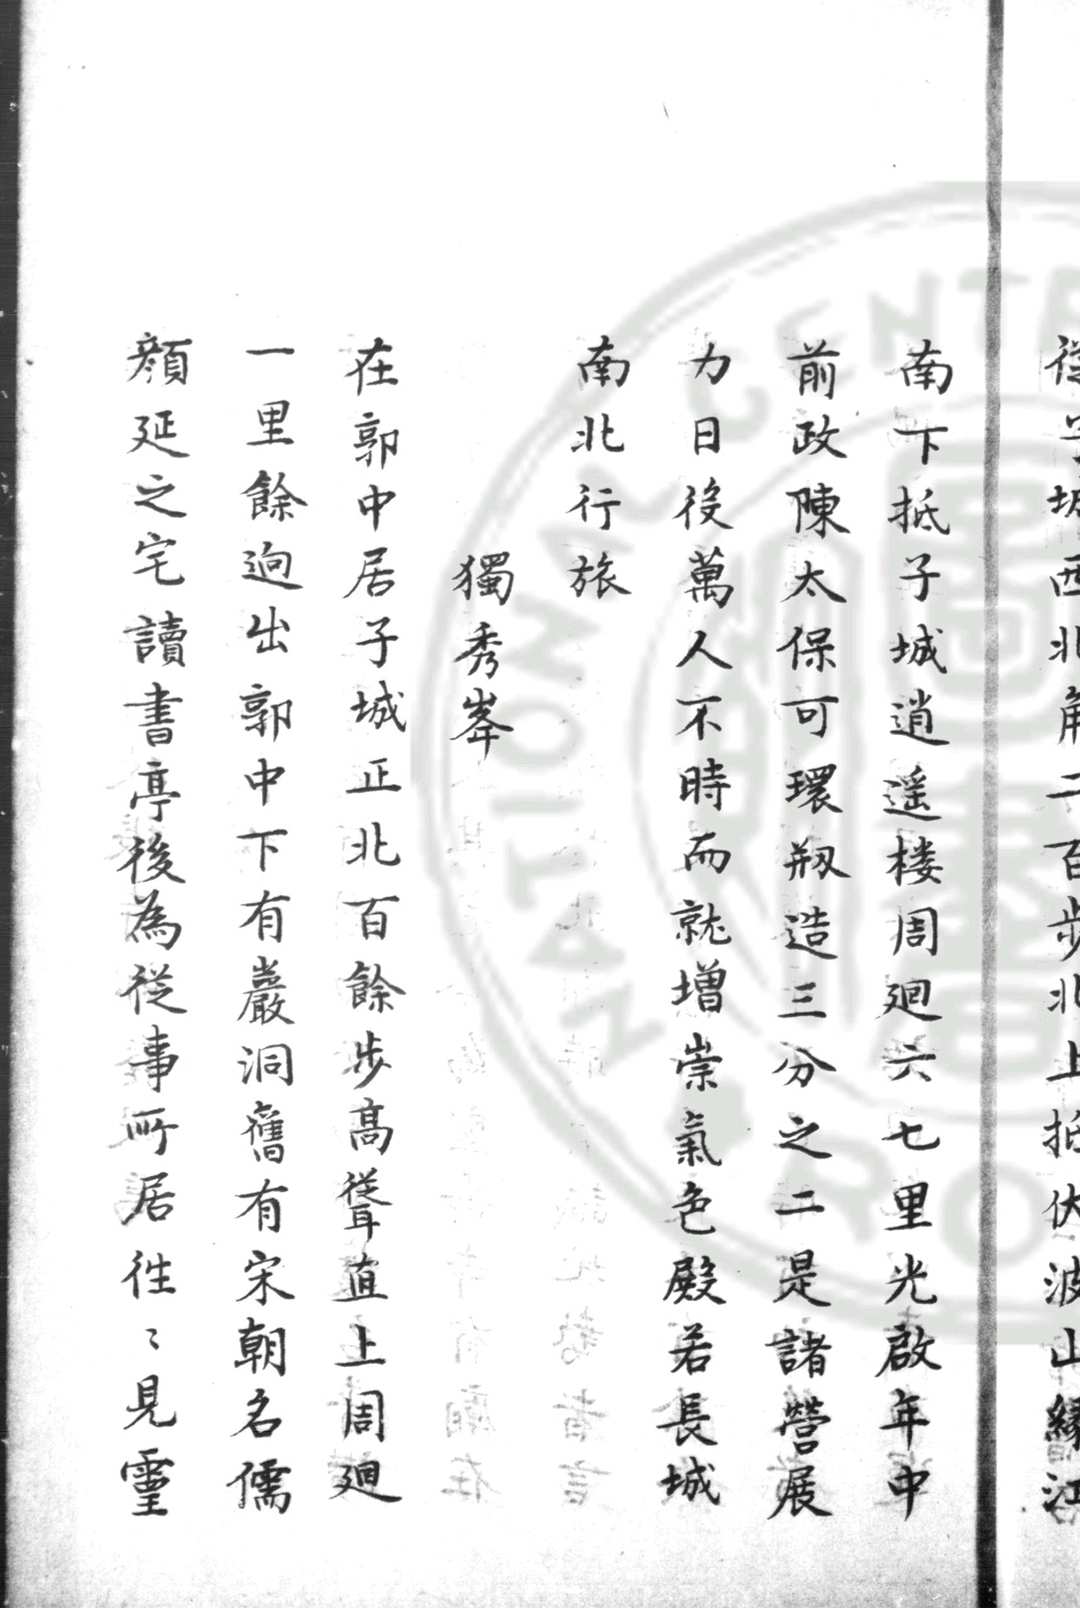 從子城西北角二百步北上抵伏波山緣江
南下抵子城逍遥楼周廻六七里光啟年中
前政陳太保可環剏造三分之二是諸營展
力日役萬人不時而就增崇氣色殿若長城
南北行旅
獨秀峯
在郭中居子城正北百餘步高聳直上周廻
一里餘逈出郭中下有巖洞舊有宋朝名儒
顏延之宅讀書亭後為從事所居徃〻見靈